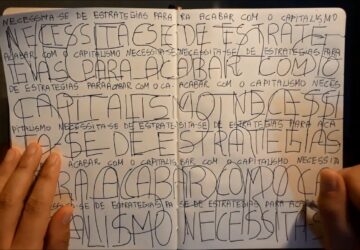 NECESSITA-SE DE ESTRATEGIAS PARA ACABAR COM O CAPITALISMO
NECESSITA-SE DE ESTRATE
ACABAR COM O CAPITALISMO NECESSITA-SE DE ESTRATEGIAS PARA
GIAS PARA ACABAR COM O
DE ESTRATEGIAS PARA ACABAR COM O CAPITALISMO NECES
CAPITALISMO NECESSI
PITALISMO NECESSITA-SE DE ESTRATEGIAS PARA ACA
TA-SE DE ESTRATEGIAS
ACABAR COM O CAPITALISMO NECESSITA
PARA ACABAR COM O CA
SE DE ESTRATEGIAS PARA NECESSITA-SE DE ESTRATEGIAS PARA ACABAR
ITALISMO NECESSITA